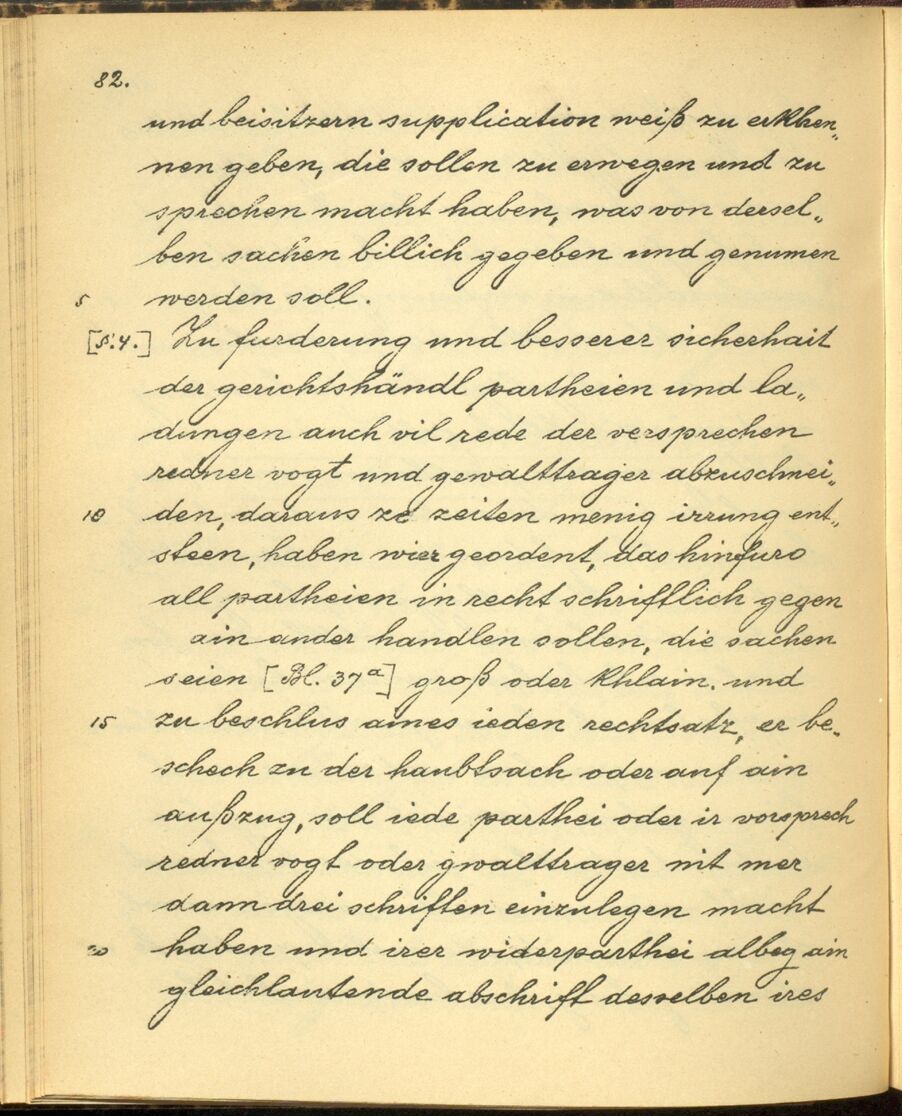 82.
und beisitzern supplication weiß zu erkhen„
nen geben, die sollen zu erwegen und zu
sprechen macht haben, was von dersel„
ben sachen billich gegeben und genumen
5 werden soll.
[§.4.] Zu furderung und besserer sicherhait
der gerichtshändl partheien und la„
dungen auch vil rede der versprechen
redner vogt und gewalttrager abzuschnei„
10 den, daraus ze zeiten menig irrung ent„
steen, haben wier geordent, das hinfuro
all partheien in recht schrifflich gegen
ain ander handlen sollen, die sachen
seien [Bl. 37a] groß oder khlain. und
15 zu beschlus aines ieden rechtsatz, er be„
schech zu der haubtsach oder auf ain
außzug, soll iede parthei oder ir vorsprech
redner vogt oder gwalttrager nit mer
dann drei schriften einzulegen macht
20 haben und irer widerparthei albeg ain
gleichlautende abschrift desselben ires